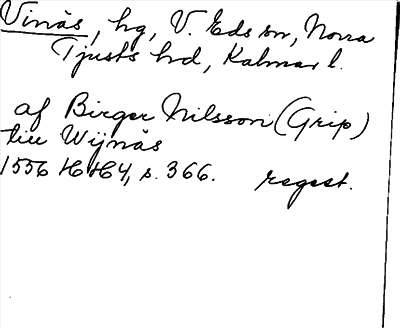 Vinäs, hg, V. Eds sn, Norra
Tjusts hd, Kalmar l.
af Birger Nilsson (Grip)
till Wijnäs
1556 HH4, s. 366. regest.